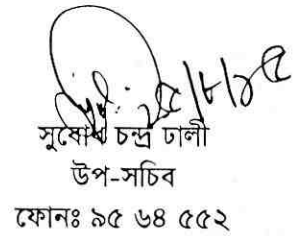 ২৫/৮/১৫
সুবোধ চন্দ্র ঢালী
উপ-সচিব
ফোনঃ ৯৫ ৬৪ ৫৫২